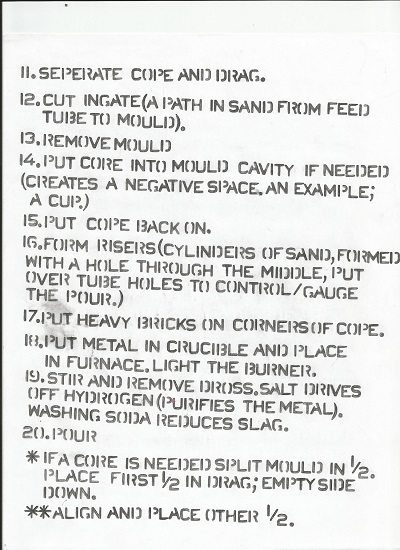 11. SEPERATE COPE AND DRAG.
12. CUT INGATE (A PATH IN SAND FROM FEED
TUBE TO MOULD).
13. REMOVE MOULD
14. PUT CORE INTO MOULD CAVITY IF NEEDED
(CREATES A NEGATIVE SPACE. AN EXAMPLE;
A CUP.)
15. PUT COPE BACK ON.
16. FORM RISERS (CYLINDERS OF SAND, FORMED
WITH A HOLE THROUGH THE MIDDLE, PUT
OVER TUBE HOLES TO CONTROL/GAUGE
THE POUR.)
17. PUT HEAVY BRICKS ON CORNERS OF COPE.
18. PUT METAL IN CRUCIBLE AND PLACE
IN FURNACE. LIGHT THE BURNER.
19. STIR AND REMOVE DROSS. SALT DRIVES
OFF HYDROGEN (PURIFIES THE METAL).
WASHING SODA REDUCES SLAG.
20. POUR
* IF A CORE IS NEEDED SPLIT MOULD IN 1/2.
PLACE FIRST 1/2 IN DRAG; EMPTY SIDE
DOWN.
** ALIGN AND PLACE OTHER 1/2.